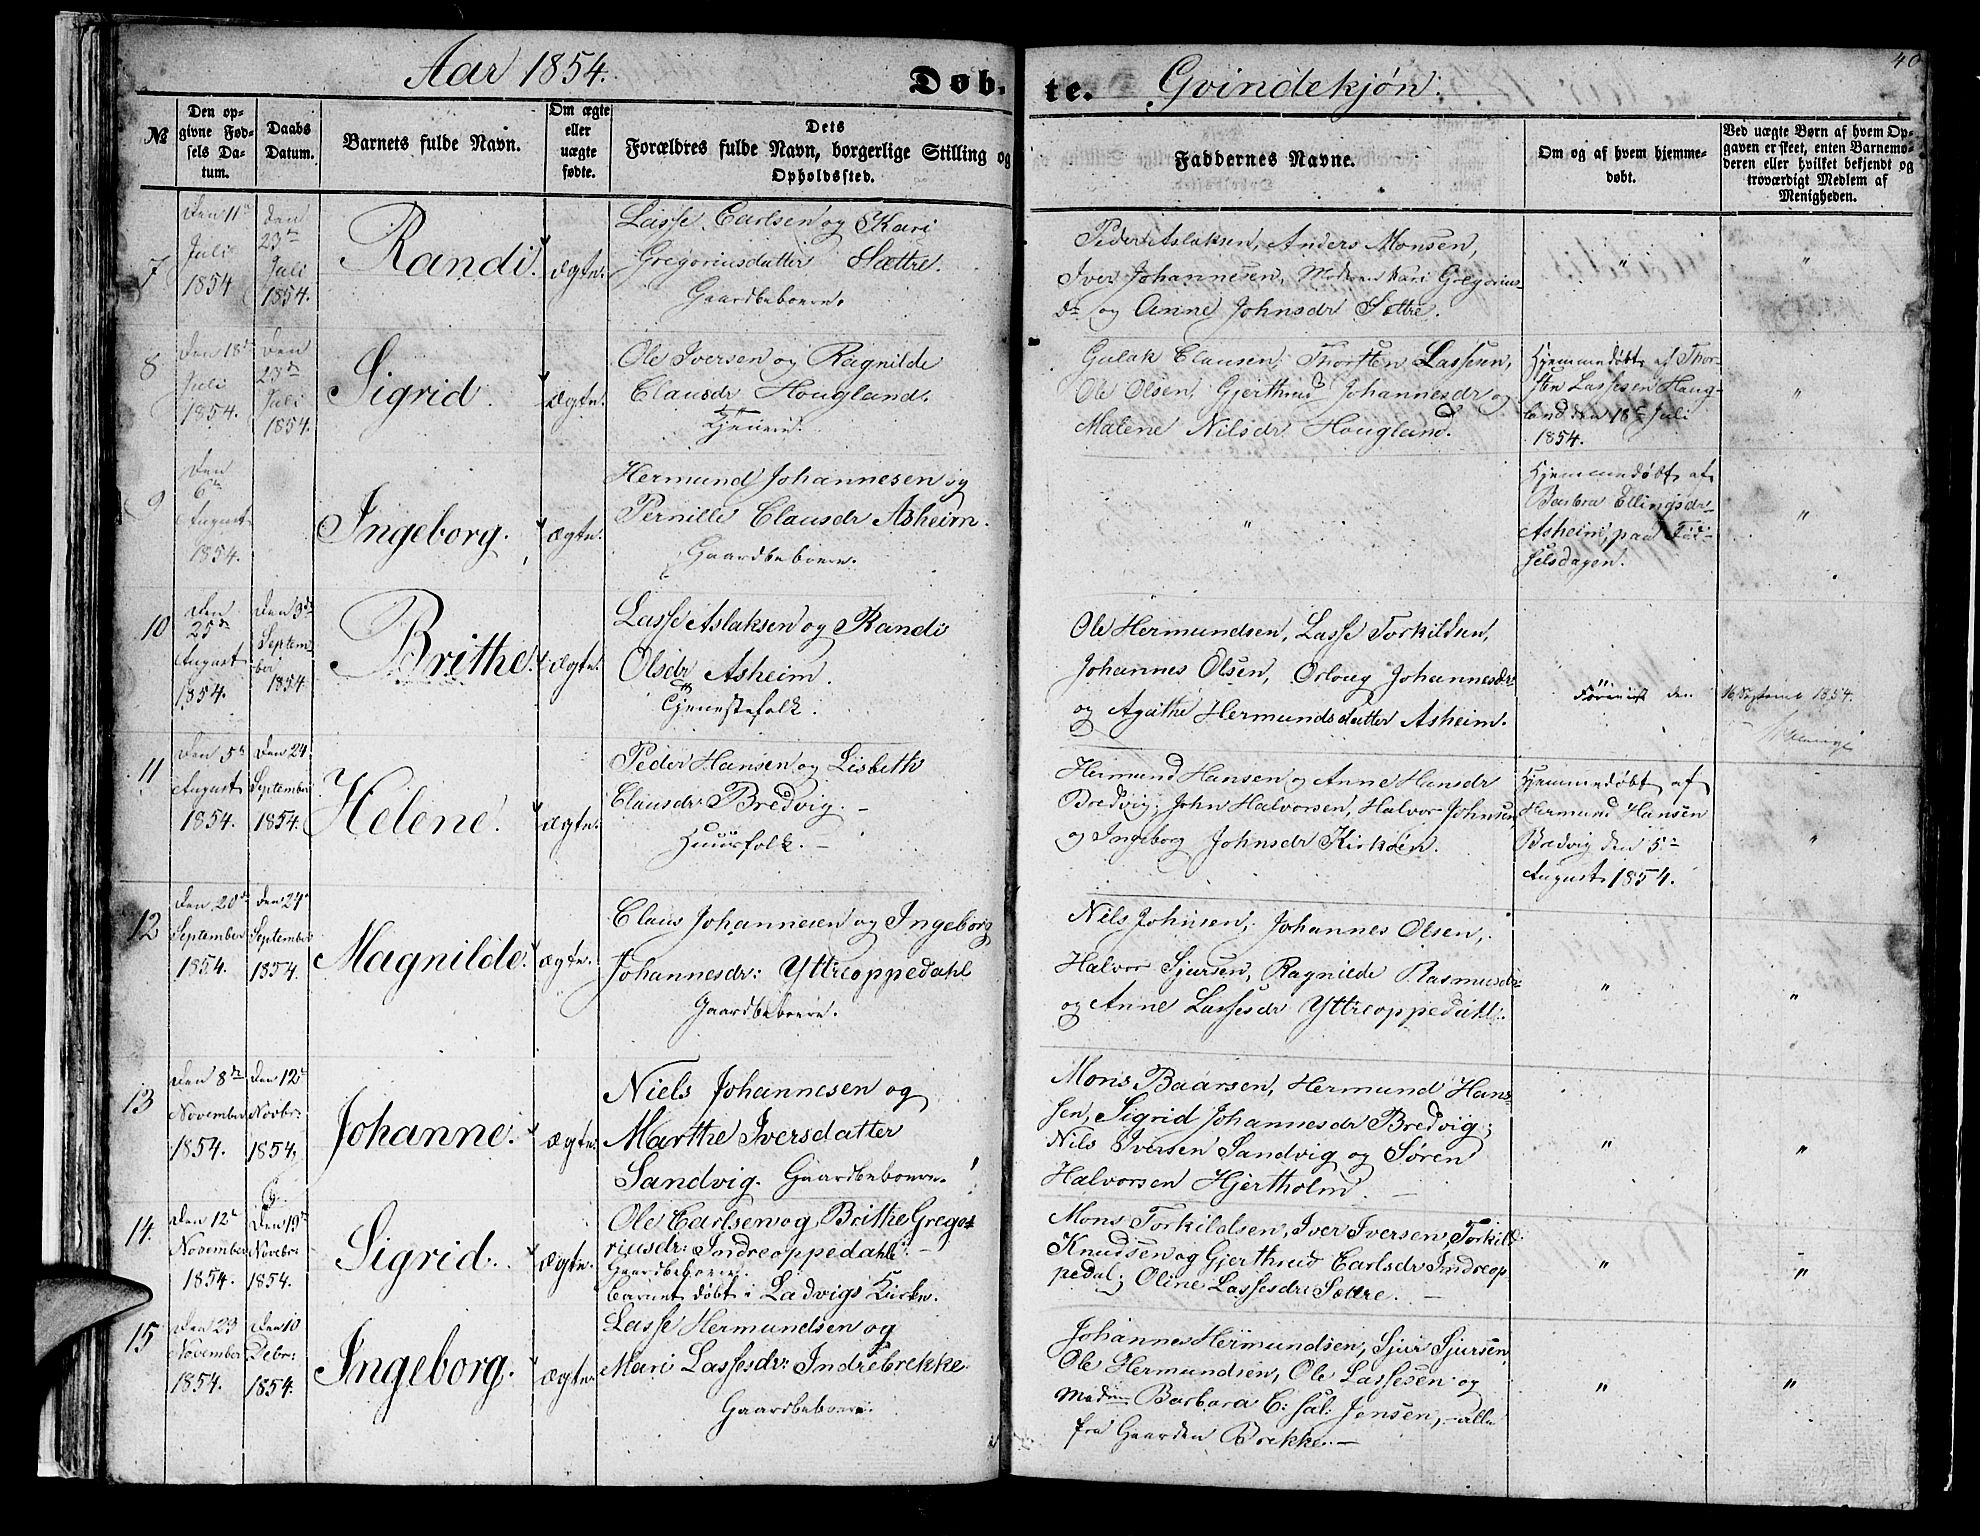 40
Aar 1854.
Døb-
te.
Qvindekjøn.
№
Den op-
givne Fød-
sels Da-
tum.
Daabs
Datum.
Barnets fulde Navn.
Om ægte
eller
uægte
fødte.
Dets
Forældres fulde Navn, borgerlige Stilling og
Opholdssted.
Faddernes Navne.
Om og af hvem hjemme-
døbt.
Ved uægte Børn af hvem Op-
gaven er skeet, enten Barnemo-
deren eller hvilket bekjendt og
troværdigt Medlem af
Menigheden.
7
Den 11te
Juli
1854
Den
23de
Juli
1854.
Randi.
ægte.
Lasse Carlsen og Kari
Gregoriusdatter Sættre.
Gaardbeboere.
Peder Aslaksen, Anders Monsen,
Iver Johannesen, Moderen Kari Gregorius-
Dr og Anne Johnsdr Sættre.
"
"
8
Den 18de
Juli
1854.
Den
23de
Juli
1854.
Sigrid.
ægte.
Ole Iversen og Ragnilde
Clausdr Hougland.
Gulak Clausen, Thorsten Lassesen,
Ole Olsen, Gjerthrud Johannesdr og
Malene Nilsdr Hougland.
Hjemmedøbt af Thor-
sten Lassesen Haug-
land den 18de Juli
1854.
"
9
Den
6te
August
1854.
Ingeborg.
ægte.
Hermund Johannesen og
Pernille Clausdr Asheim.
Gaardbeboere.
"
Hjemmedøbt af
Barbra Ellingsdr
Asheim, paa Fød-
selsdagen.
"
10
Den
25de
August
1854.
Den 3de
Septem-
ber
1854.
Brithe.
ægte.
Lasse Aslaksen og Randi
Olsdr Asheim.
Tjenestefolk.
Ole Hermundsen, Lasse Torkildsen,
Johannes Olsen, Orloug Johannesdr
og Agathe Hermundsdatter Asheim.
"
den
16 Septemb 1854.
11
Den 5te
August
1854.
Den 24
September
1854.
Helene.
ægte.
Peder Hansen og Lisbeth
Clausdr: Bredvig. -
Huusfolk. -
Hermund Hansen og Anne Hansdr
Bredvig; John Halvorsen, Halvor Johnsen,
og Ingeborg Johnsdr Kirkøen.
Hjemmedøbt af
Hermund Hansen
Bredvig den 5te
August 1854.
"
12
Den 20de
September
1854.
Den 24de
September
1854.
Magnilde.
ægte.
Claus Johannesen og Ingeborg
Johannesdr: Yttreoppedahl
Gaardbeboere.
Nils Johnsen, Johannes Olsen,
Halvor Sjursen, Ragnilde Rasmusdr
og Anne Lassesdr Yttreoppedahl.
"
"
13
Den 8de
November
1854.
Den 12te
Novbr:
1854.
Johanne.
ægte.
Niels Johannesen og
Marthe Iversdatter
Sandvig. Gaardbeboere.
Mons Baarsen, Hermund Han-
sen, Sigrid Johannesdr Bredvig;
Nils Iversen Sandvig og Søren
Halvorsen Hjertholm. -
"
"
14.
Den 12te
November
1854.
Den 19de
Novbr:
1854.
Sigrid.
ægte.
Ole Carlsen og Brithe Grego-
riusdr: Indreoppedahl. -
Gaardbeboere.
Barnet døbt i Ladvigs Kirke.
Mons Torkildsen, Iver Iversen, Torkild
Knudsen og Gjerthrud Carlsdr Indreop-
pedal; Oline Lassesdr: Sættre. -
"
"
15
Den 29
November
1854.
Den 10
Debr:
1854.
Ingeborg.
ægte.
Lasse Hermundsen og
Mari Lassesdr: Indrebrekke.
Gaardbeboere.
Johannes Hermundsen, Sjur Sjursen,
Ole Hermundsen, Ole Lassesen og
Madm Barbara C: sal: Jensen, - alle
fra Gaarden Brekke. -
"
"